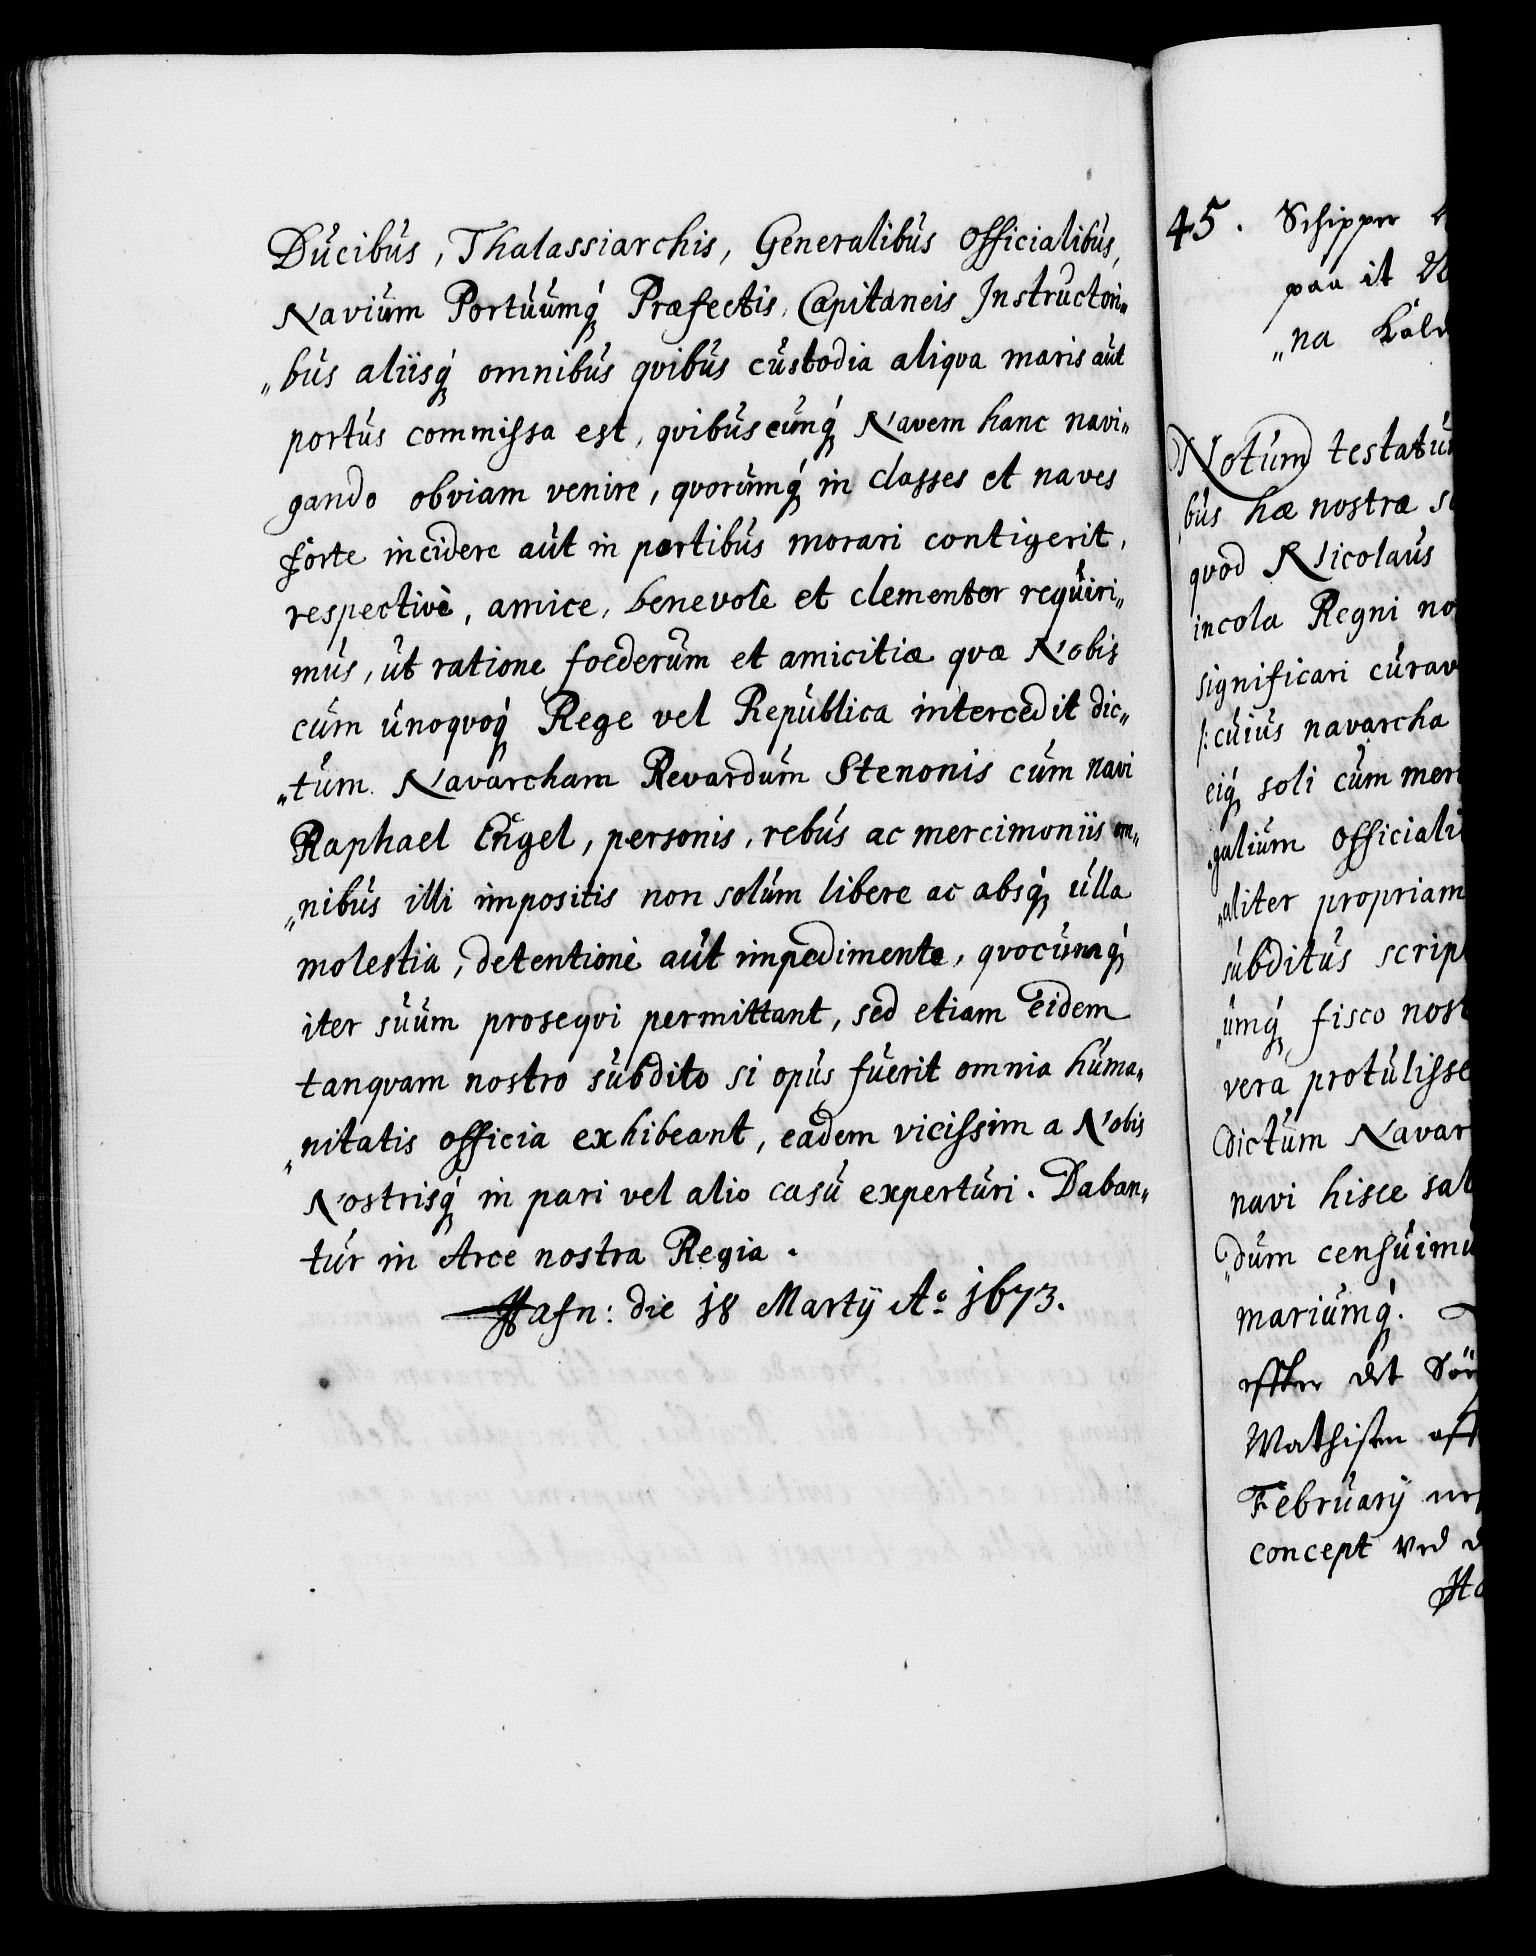 Ducibus, Thalassiarchis, Generalibus Officialibus,
Navium Portuumq́ Præfectis, Capitaneis Instructori„
„bus aliisq́ omnibus qvibus custodia aliqva maris aut
portus commissa est, qvibuscunq́ Navem hanc navi„
gando obviam venire, qvorumq́ in classes et naves
forte incidere aut in portibus morari contigerit,
respectivè, amice, benevolè et clementer requiri„
mus, ut ratione foederum et amicitiæ qvæ Nobis
cum unoqvoq́ Rege vel Republica intercedit dic„
„tum Navarcham Revardum Stenonis cum navi
Raphael Engel, personis, rebus ac mercimoniis om„
„nibus illi impositis non solum libere ac absq́ ulla
molestia, detentione aut impedimento, qvocunq́
iter suum proseqvi permittant, sed etiam eidem
tanqvam nostro subdito si opus fuerit omnia huma„
„nitatis officia exhibeant, eadem vicissim a Nobis
Nostrisq́ in pari vel alio casu experturi. Daban„
tur in Arce nostra Regia.
Hafn: die 18 Martij Ao 1673.
45. Schipper
paa it
„na
Notum testatu
bus hæ nostræ
qvod Nicolaus
incola Regni no
significari curav
/: cuius navarcha
eiq́ soli cum mer
galium Officiali
„aliter propriam
subditus scrip
„umq́ fisco nost
vera protulisse
dictum Navar
navi hisce sal
„dum censuimu
mariumq́.
effter det
Mathisen aff
Februarij
concept ved
Ha